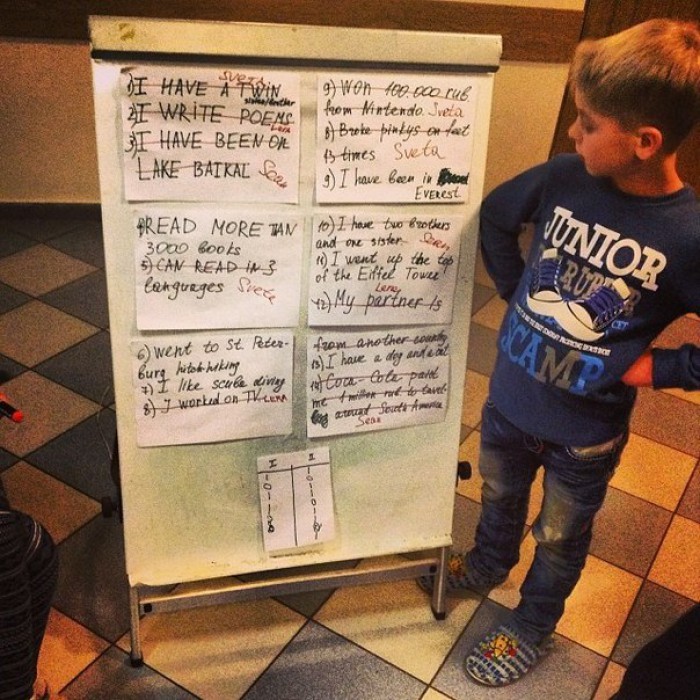 Sveta
1) I HAVE A TWIN
sister/brother
2) I WRITE POEMS
Lena
3) I HAVE BEEN ON
LAKE BAIKAL Sean
4) READ MORE TAN
3000 books
5) CAN READ IN 3
languages Sveta
6) went to St Peter-
burg hitch-hiking
7) I like scuba diving
8) I worked on TV LENA
9) Won 100.000 rub
from Nintendo Sveta
8) Broke pinkys on feet
13 times Sveta
9) I have been in
EVEREST
10) I have two brothers
and one sister Sean
11) I went up the top
of the Eiffel Tower
Lena
12) My partner is
from another country
13) I have a dog and a cat
14) Coca-Cola paid
me 1 million rub to travel
around South America
Sean
I I
JUNIOR
SCAMP